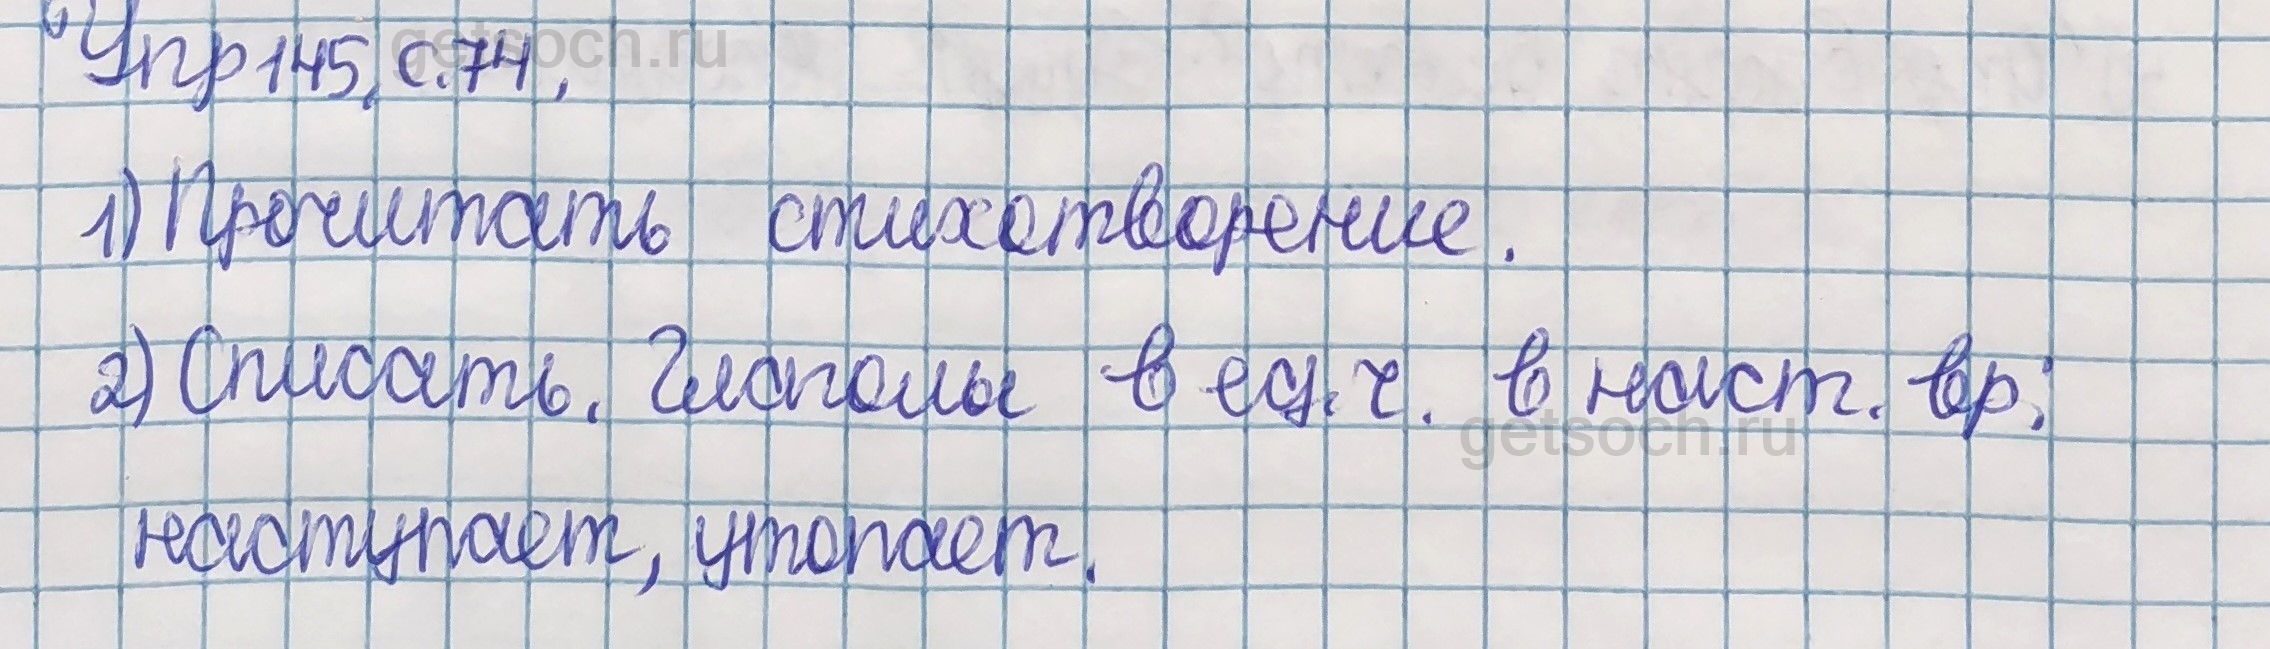 Упр 145, с. 74.
getsoch.ru
1) Прочитать стихотворение.
2) Списать. Глаголы в ед. ч. в наст. вр:
getsoch.ru
наступает, утопает.